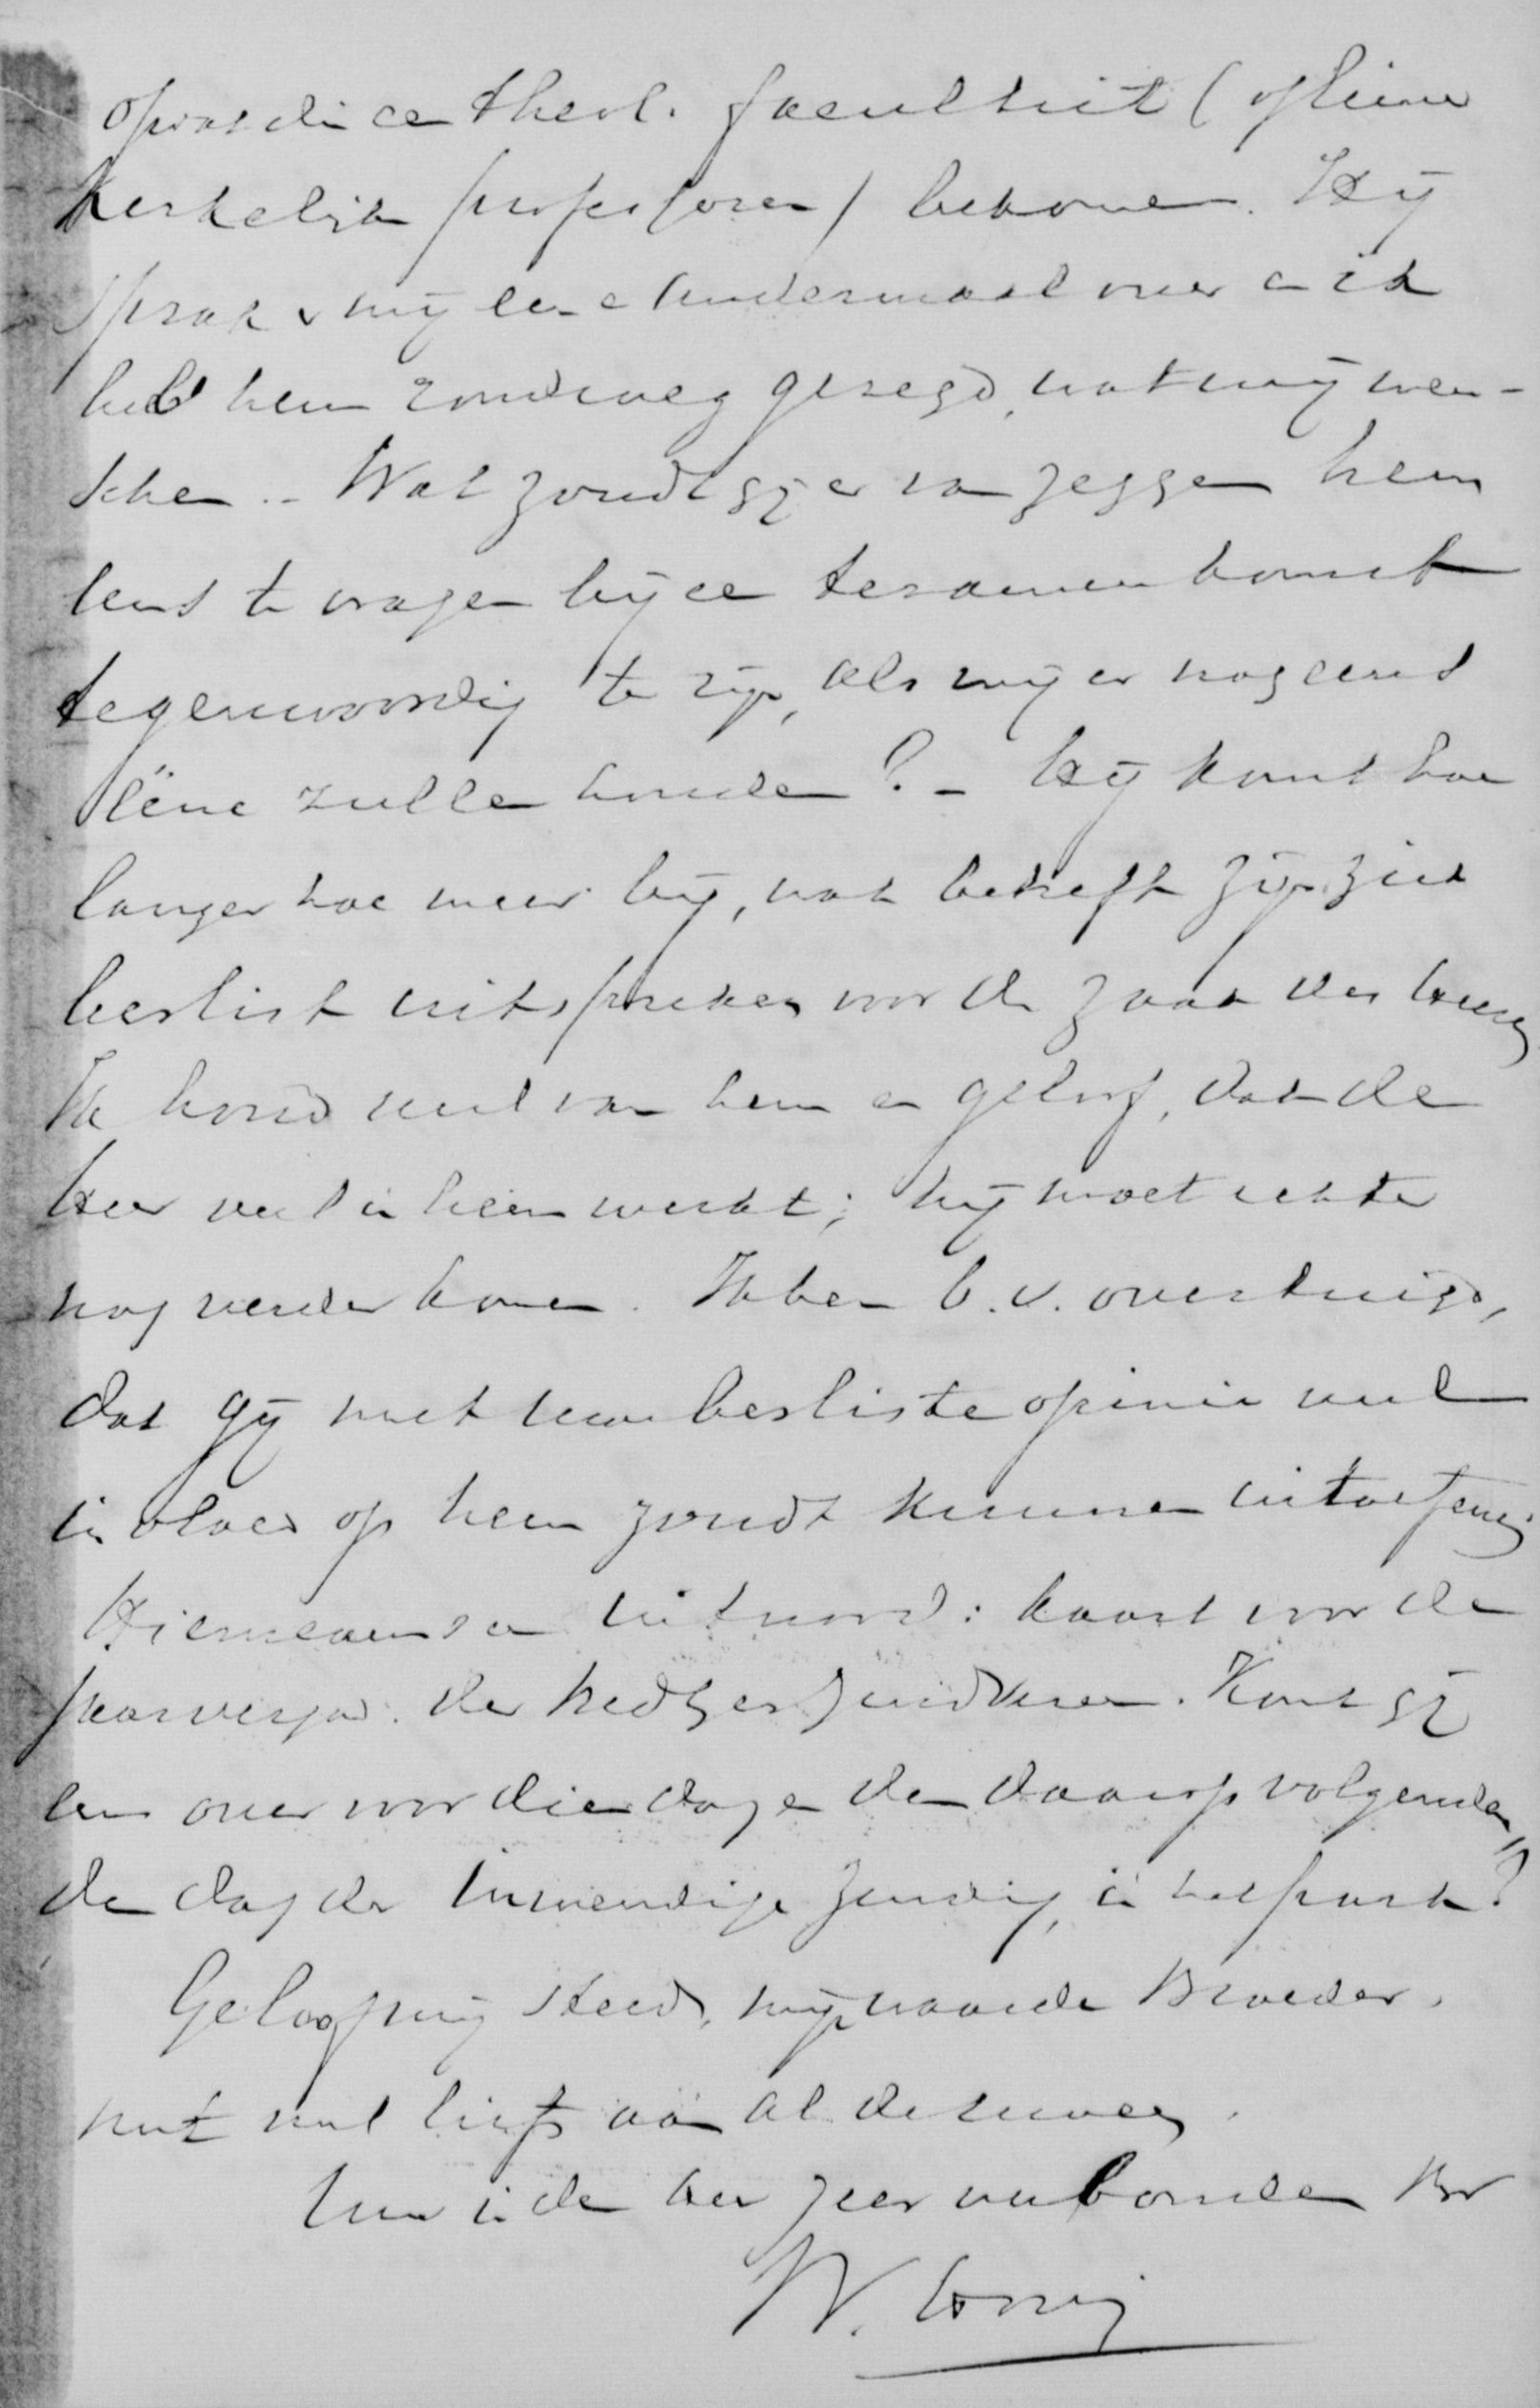 theol. faculteit (of liever
kerkelijke professoren) bekomen. Hij
sprak mij er andermaal over en ik
heb hem rondweg gezegd, wat wij wen-
schen. – Wat zoudt gij er van zeggen hem
eens te vragen bij ee tezamenkomst
tegenwoordig te zijn, als wij er nog eens
ééne zullen houden? – Hij komt hoe
langer hoe meer bij, wat betreft zijn zich
beslist uitspreken voor de zaak des Heeren
Ik houd veel van hem en geloof, dat de
Heer veel in hem werkt; hij moet echter
nog verder komen. Ik ben b.v. overtuigd,
dat gij met uwe besliste opinie veel
invloed op hem zoudt kunnen uitoefenen.
Hiernevens een kaart voor de
jaarvergad. der Ned. Ger. Zendver. Komt gij
een over voor die dag en den daaropvolgenden,
de dag der inwendige zending, in het park?
Geloof mij steeds, mijn waarde Broeder,
met veel liefs aan al de uwen,
Uw in den Heer zeer verbonden Br
W.